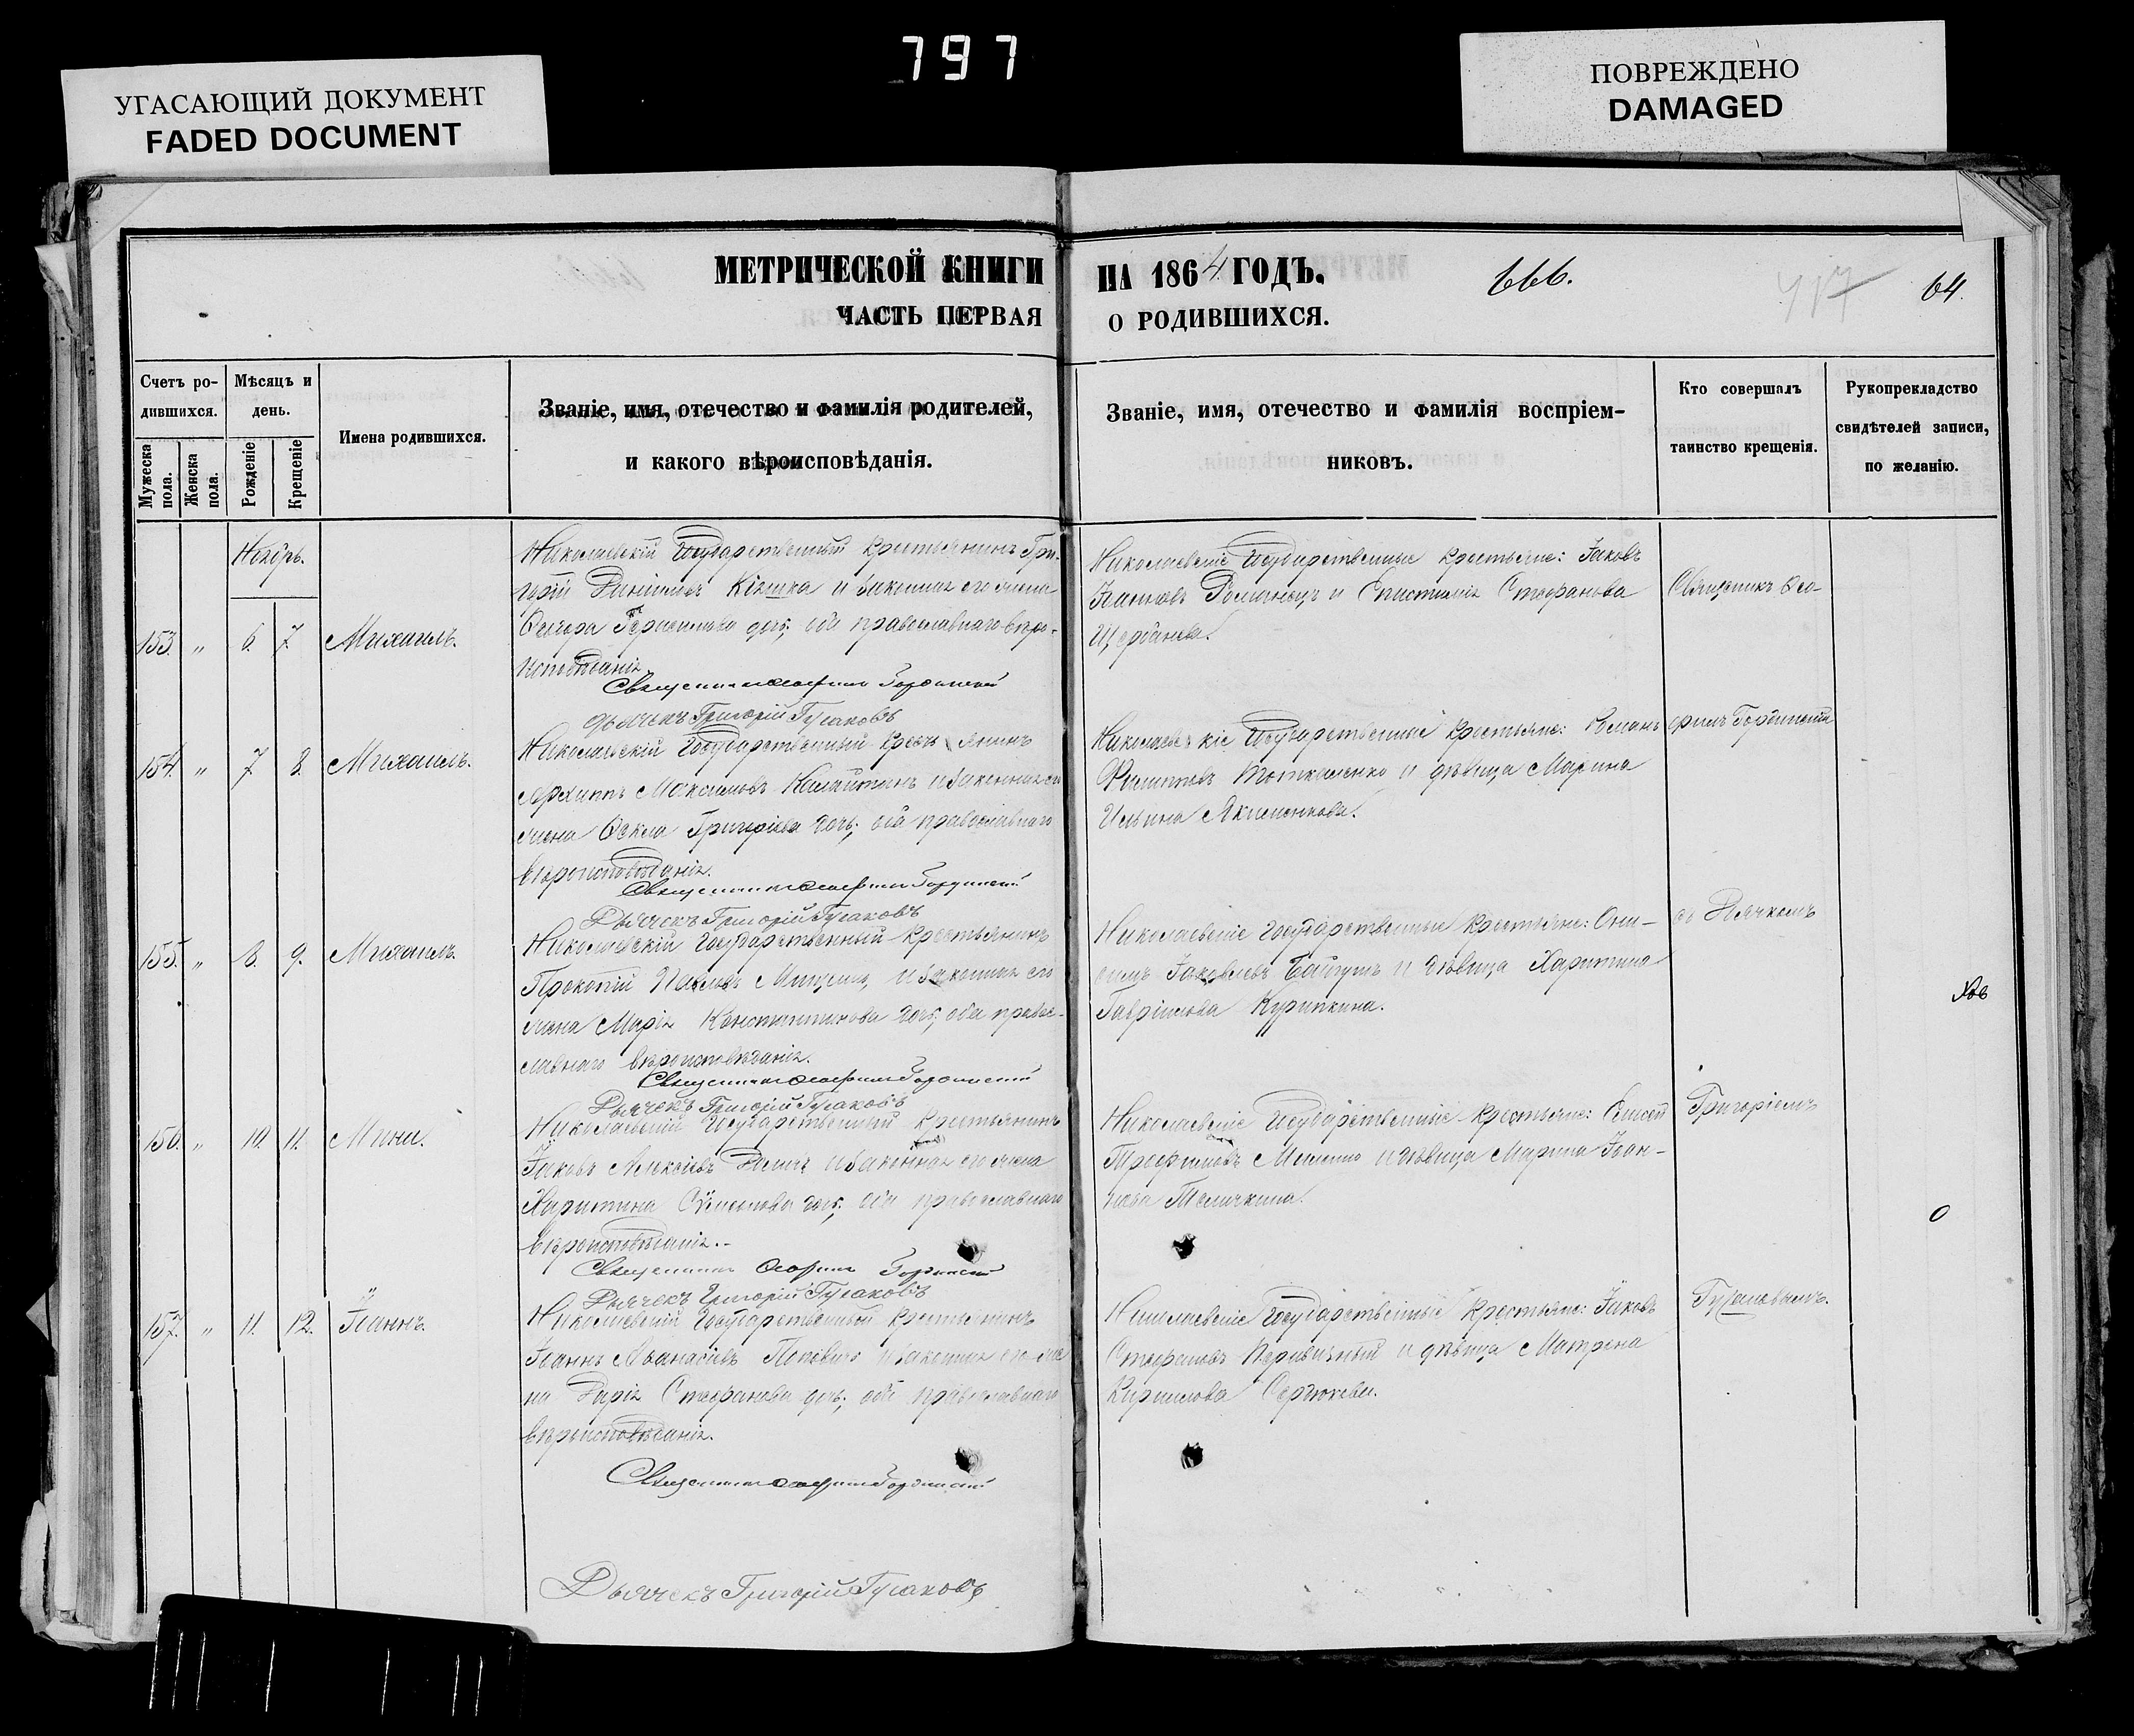 797
УГАСАЮЩИЙ ДОКУМЕНТ
FADED DOCUMENT
ПОВРЕЖДЕНО
DAMAGED
МЕТРИЧЕСКОЙ КНИГИ НА 1864 ГОДЪ.
666.
417
64.
ЧАСТЬ ПЕРВАЯ О РОДИВШИХСЯ.
Счетъ ро-
дившихся.
Мужеска пола.
Женска пола.
Мѣсяцъ и
день.
Рожденіе
Крещеніе
Имена родившихся.
Званіе, имя, отечество и фамилія родителей,
и какого вѣроисповѣданія.
Званіе, имя, отечество и фамилія воспріем-
никовъ.
Кто совершалъ
таинство крещенія.
Рукоприкладство
свидѣтелей записи,
по желанію.
Ноябрь.
153. " 6. 7. Михаилъ.
Николаевскій Государственный крестьянинъ Гри-
горій Даніиловъ Кишка и законная его жена
дочь; оба православнаго вѣро-
исповѣданія
Священникъ Гординскій
Дьячекъ Григорій Гусаковъ
Николаевскіе Государственные крестьяне: Іаковъ
Іоанновъ и Стефанова
Щербанева.
Священникъ Ѳео-
154. " 7 8. Михаилъ.
Николаевскій Государственный крестьянинъ
Архиппъ Максимовъ и законная его
жена Ѳекла Григоріева дочь; оба православнаго
вѣроисповѣданія.
Священникъ Гординскій
Дьячекъ Григорій Гусаковъ
Николаевскіе Государственные крестьяне: Романъ
Филипповъ Ткаленко и дѣвица Марина
Ильина Якименкова.
филъ Гординскій
155. " 8. 9. Михаилъ.
Николаевскій Государственный крестьянинъ
Прокопій Павловъ и законная его
жена Марія Константинова дочь; оба право-
славнаго вѣроисповѣданія.
Священникъ Гординскій
Дьячекъ Григорій Гусаковъ
Николаевскіе Государственные крестьяне: Они-
симъ Іаковлевъ и дѣвица Харитина
Гавріилова Курипкина.
съ Дьячкомъ
156. " 10. 11. Мина.
Николаевскій Государственный крестьянинъ
Іаковъ Алексіевъ и законная его жена
Харитина дочь; оба православнаго
вѣроисповѣданія.
Священникъ Гординскій
Дьячекъ Григорій Гусаковъ
Николаевскіе Государственные крестьяне:
Трофимовъ и дѣвица Марина Іоан-
нова Теличкина.
Григоріемъ
157. " 11. 12. Іоаннъ.
Николаевскій Государственный крестьянинъ
Іоаннъ Аѳанасіевъ Поповичъ и законная его же-
на Дарія Стефанова дочь; оба православнаго
вѣроисповѣданія.
Священникъ Гординскій
Дьячекъ Григорій Гусаковъ
Николаевскіе Государственные крестьяне: Іаковъ
Стефановъ и дѣвица Матрона
Кириллова Сердюкова.
Гусаковымъ.